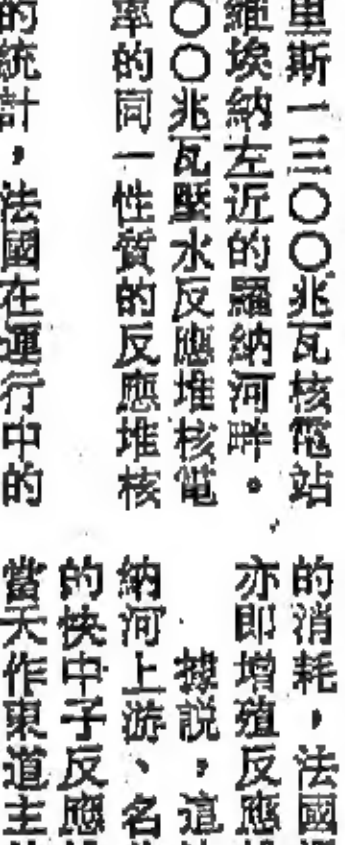 里斯一三〇〇兆瓦核電站
羅埃納左近的羅納河畔。
〇〇兆瓦壓水反應堆核電
率的同一性質的反應堆核
的統計，法國在運行中的
的消耗，法國
亦即增殖反應
據説，這
納河上游、名
的快中子反應
當天作東道主